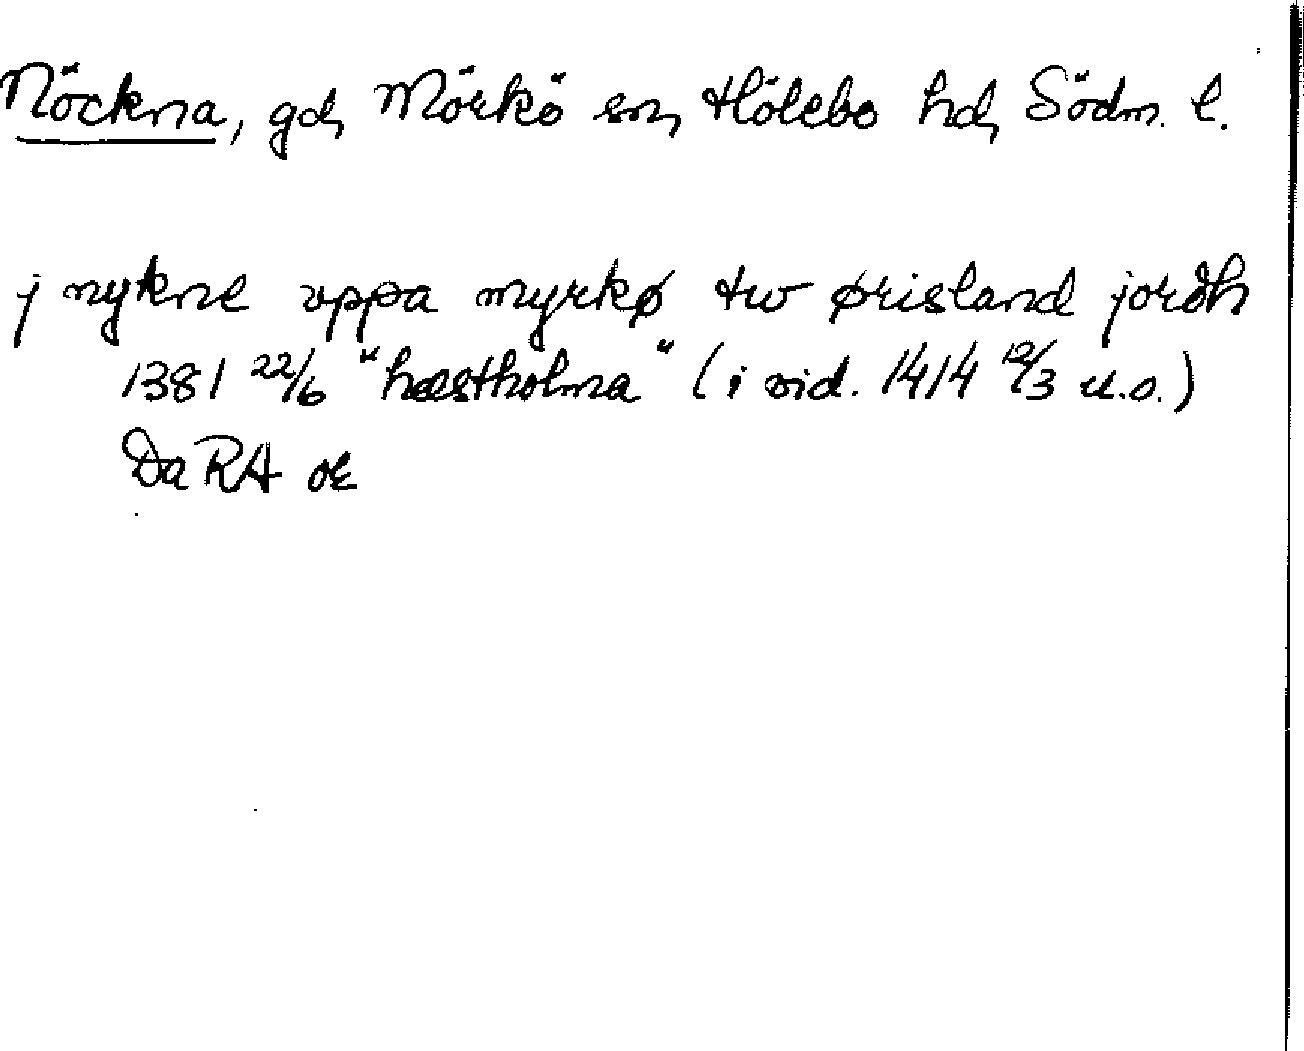 Nöckna, gd, Mörkö sn, Hölebo hd, Södm. l.
j nykne uppa myrkø tw ørisland jordh
1381 22/6 "hæstholma" (i vid. 1414 12/3 u.o.)
Da RA or